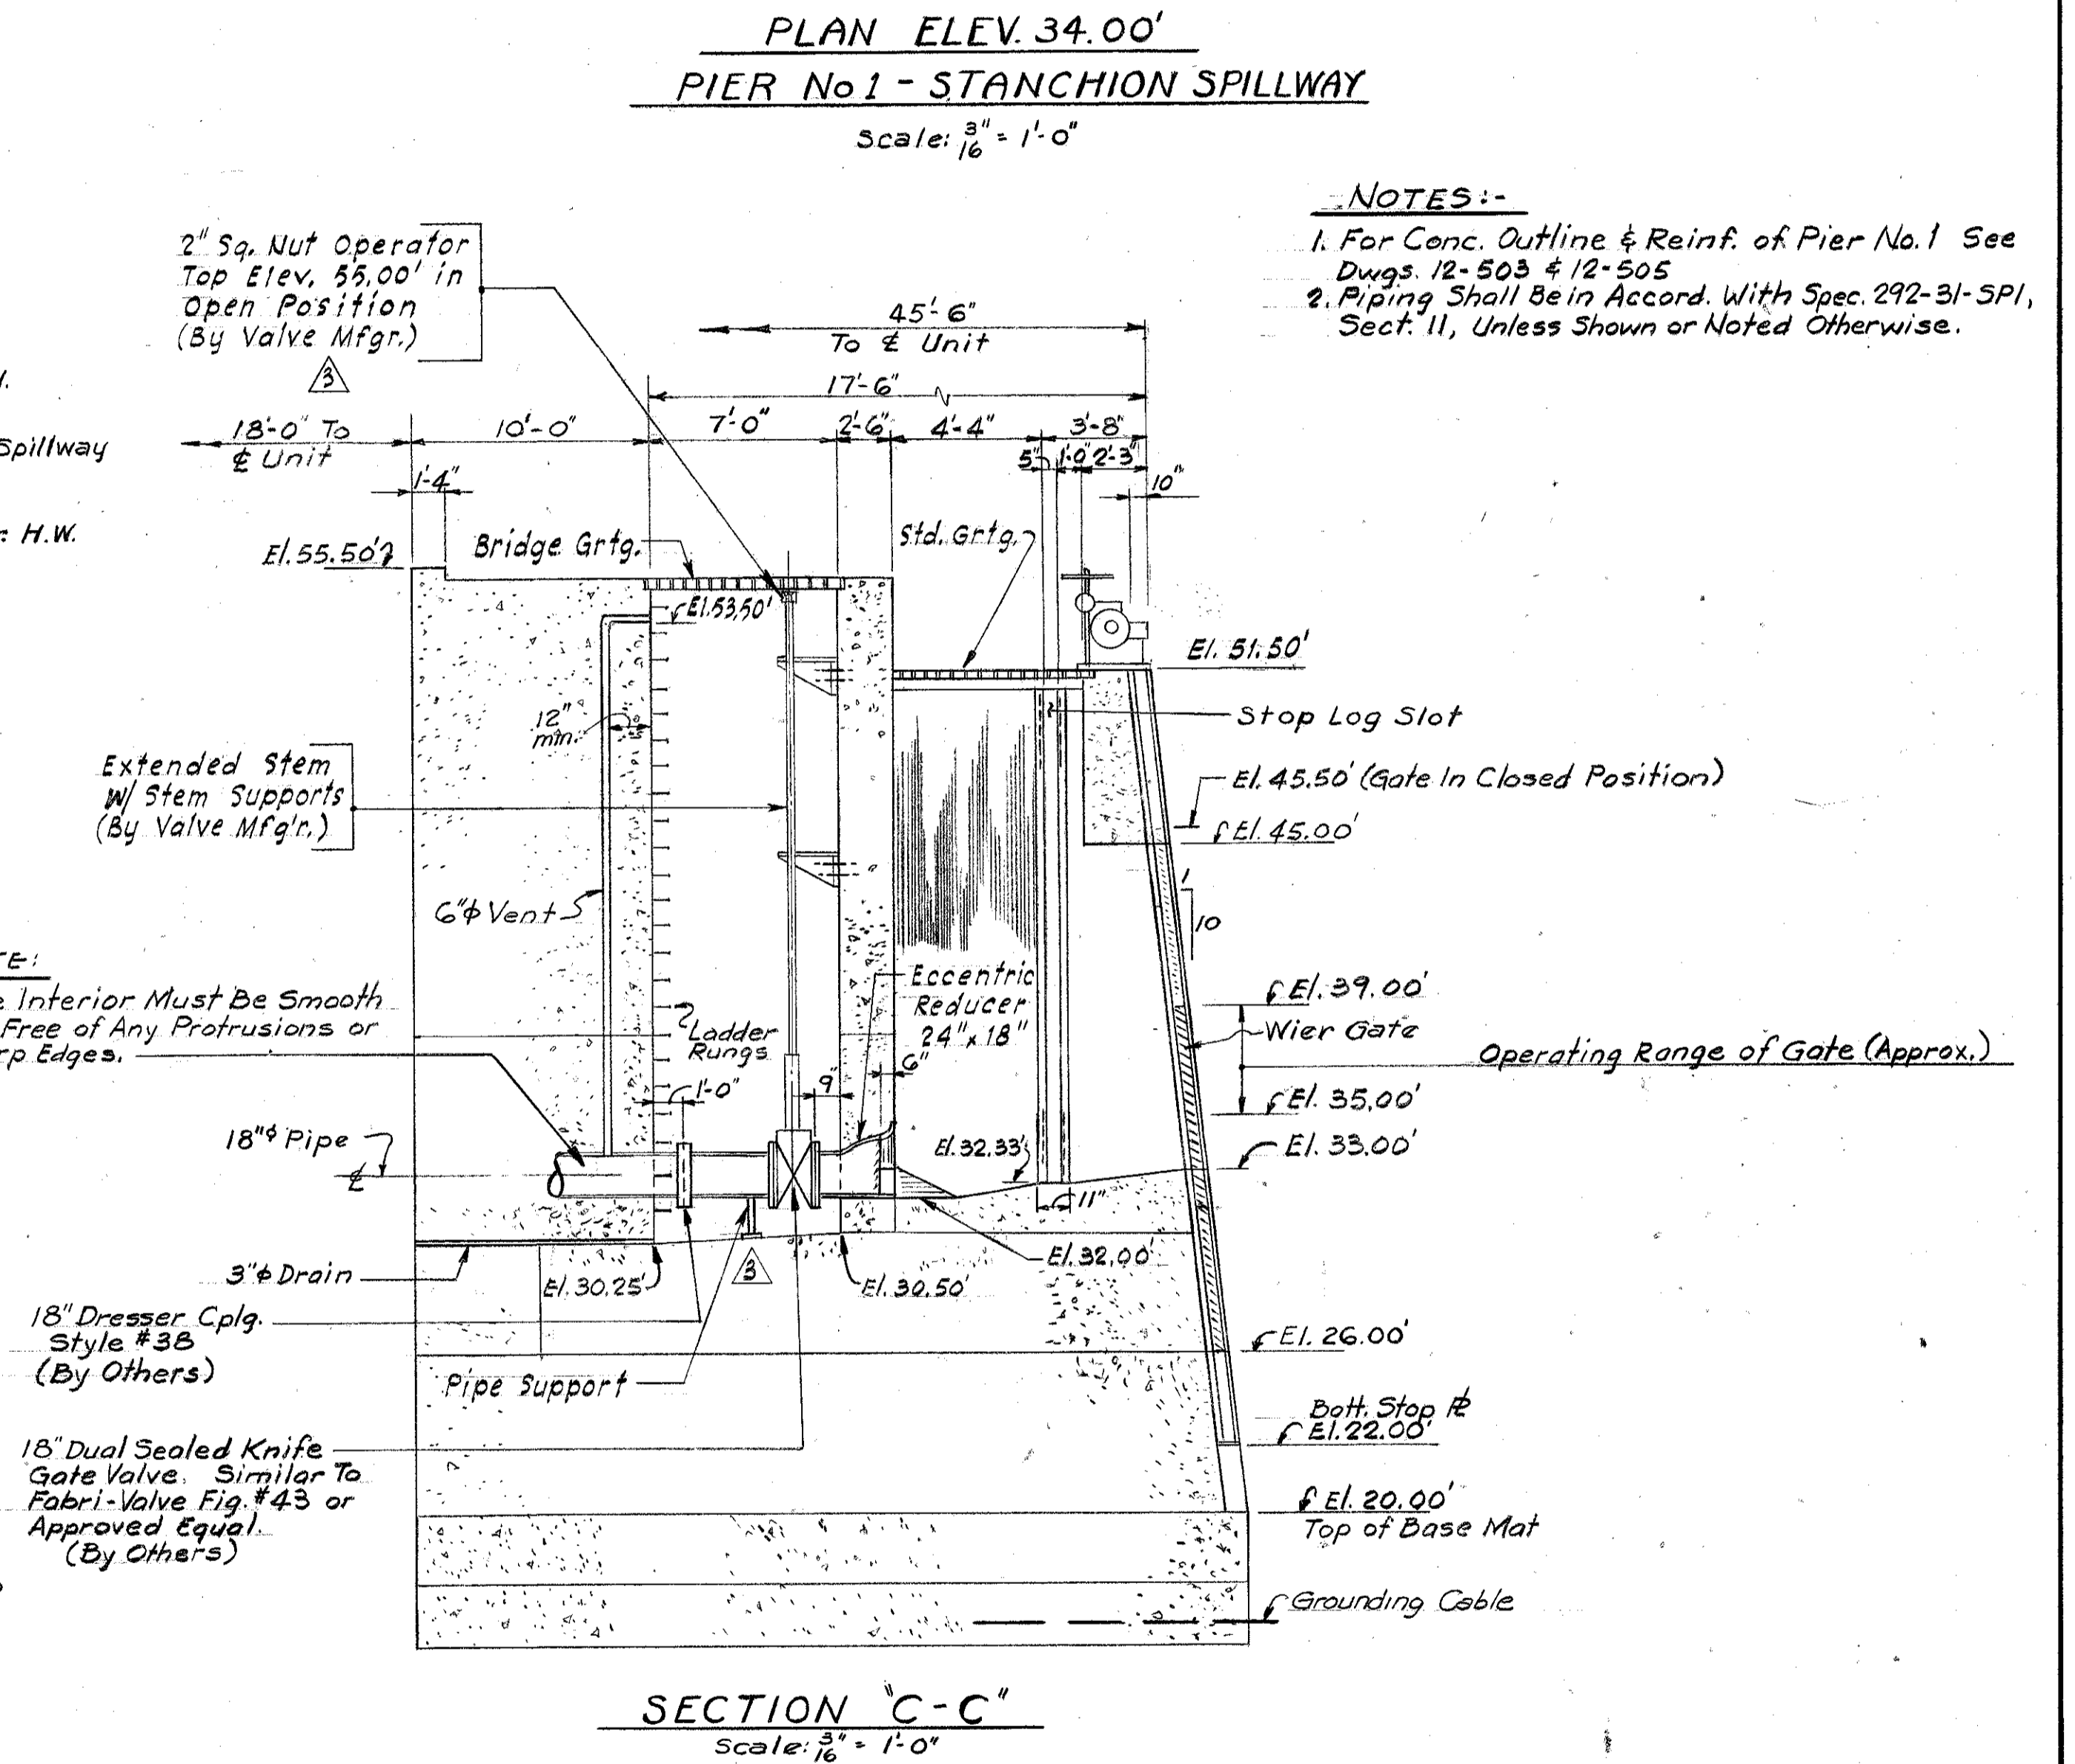 PLAN ELEV. 34.00'
PIER No 1 - STANCHION SPILLWAY
Scale: 3/16" = 1'-0"
NOTES:-
1. For Conc. Outline & Reinf. of Pier No. 1 See
Dwgs. 12-503 & 12-505
2. Piping Shall Be in Accord. With Spec. 292-31-SP1,
Sect. 11, Unless Shown or Noted Otherwise.
2" Sq. Nut Operator
Top Elev. 55.00' in
Open Position
(By Valve Mfgr.)
3
45'-6"
To ℄ Unit
17'-6"
18'-0" To
℄ Unit
10'-0"
7'-0"
2'-6"
4'-4"
3'-8"
5"
1'-0"
2'-3"
10"
1'-4"
Spillway
H.W.
El. 55.50'
Bridge Grtg.
Std. Grtg.
El. 53.50'
El. 51.50'
12"
min.
Stop Log Slot
Extended Stem
W/ Stem Supports
(By Valve Mfg'r.)
El. 45.50' (Gate In Closed Position)
El. 45.00'
1
10
6"φ Vent
TE:
Interior Must Be Smooth
Free of Any Protrusions or
rp Edges.
Eccentric
Reducer
24" x 18"
Ladder
Rungs
El. 39.00'
Wier Gate
Operating Range of Gate (Approx.)
6"
9"
1'-0"
El. 35.00'
18"φ Pipe
℄
El. 32.33'
El. 33.00'
11"
3"φ Drain
El. 30.25'
3
El. 30.50'
El. 32.00'
18" Dresser Cplg.
Style #38
(By Others)
El. 26.00'
Pipe Support
Bott. Stop ℄
El. 22.00'
18" Dual Sealed Knife
Gate Valve. Similar To
Fabri-Valve Fig. #43 or
Approved Equal.
(By Others)
El. 20.00'
Top of Base Mat
Grounding Cable
SECTION "C-C"
Scale: 3/16" = 1'-0"